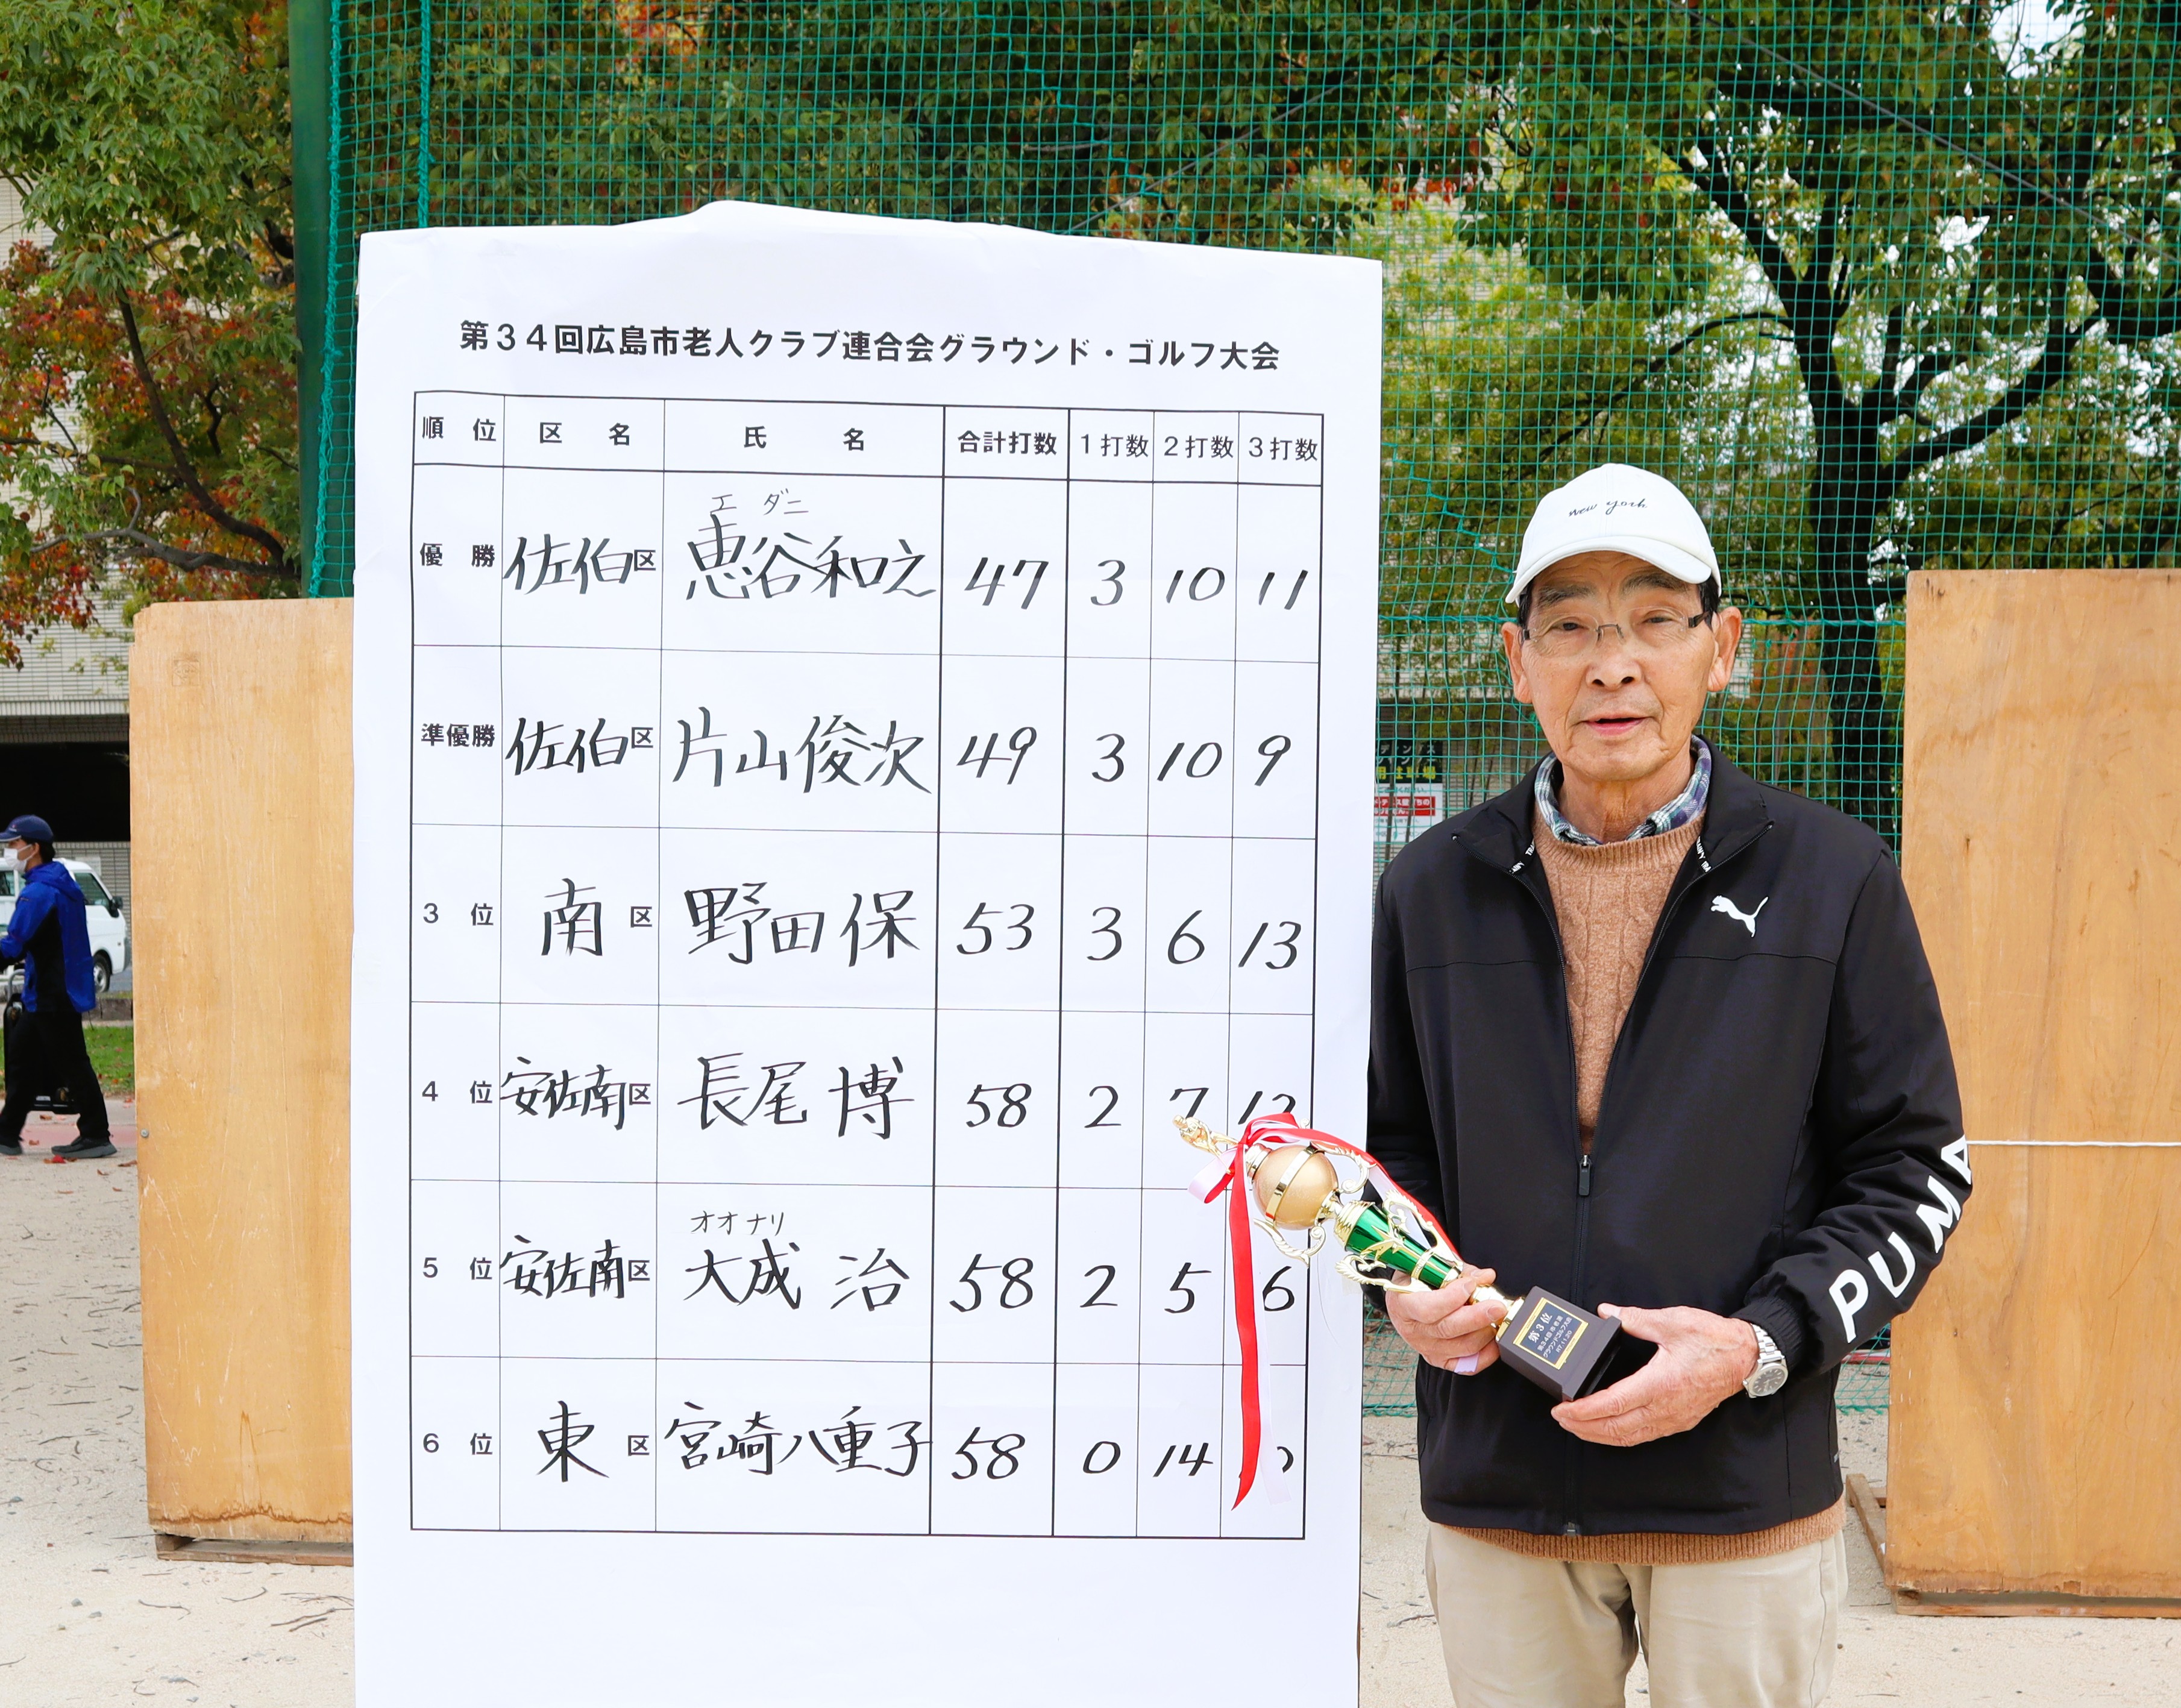 第34回広島市老人クラブ連合会グラウンド・ゴルフ大会
順 位 区 名 氏 名 合計打数 1打数 2打数 3打数
エ ダニ
優 勝 佐伯区 恵谷和之 47 3 10 11
準優勝 佐伯区 片山俊次 49 3 10 9
3 位 南 区 野田保 53 3 6 13
4 位 安佐南区 長尾 博 58 2 7
オオナリ
5 位 安佐南区 大成 治 58 2 5 6
6 位 東 区 宮崎八重子 58 0 14
new york
PUMA
第3位
第34回市老連
グラウンドゴルフ大会
R7.11.20